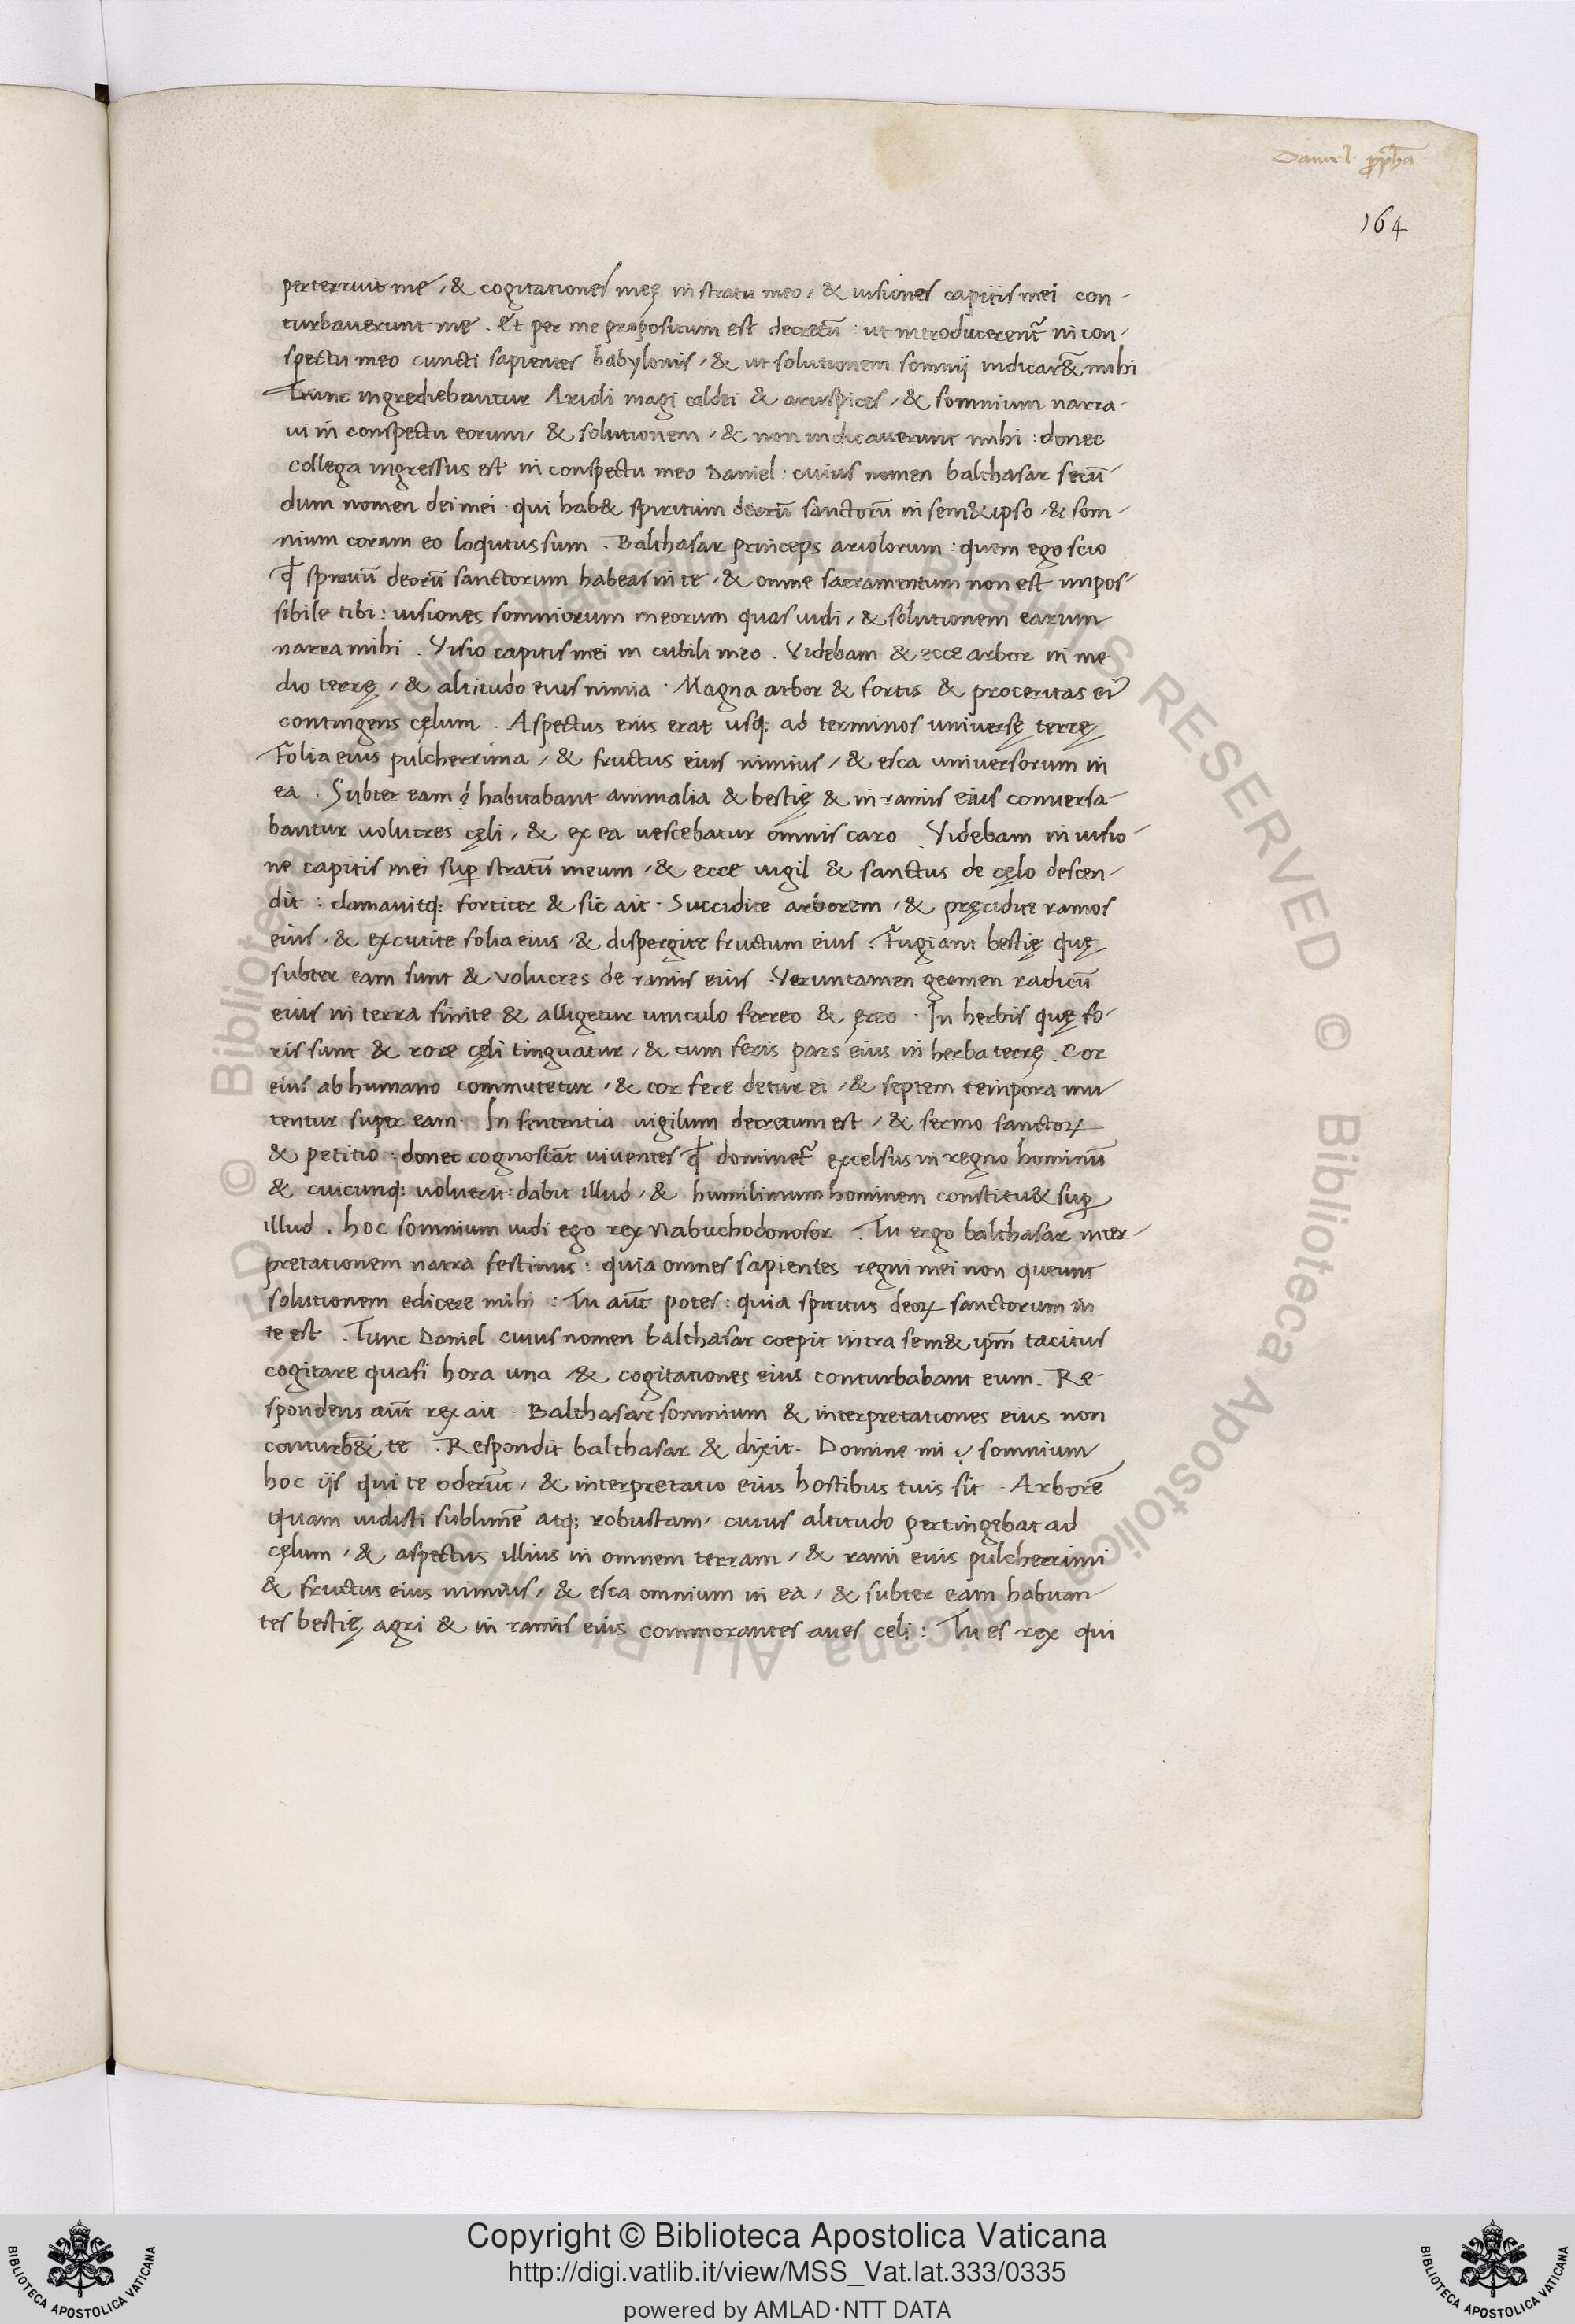 Daniel propha
164
perterruit me, & cogitationes meę in stratu meo, & uisiones capitis mei con-
turbauerunt me. Et per me propositum est decretū: ut introducerent̃ in con-
spectu meo cuncti sapientes babylonis, & ut solutionem somnij indicar& mihi
Tunc ingrediebantur Arioli magi caldei & aruspices, & somnium narra-
ui in conspectu eorum, & solutionem, & non indicauerunt mihi: donec
collega ingressus est in conspectu meo Daniel: cuius nomen balthasar secū-
dum nomen dei mei: qui hab& spiritum deorū sanctorū in sem&ipso, & som-
nium coram eo loqutus sum. Balthasar princeps ariolorum: quem ego scio
ꝙ spiritū deorū sanctorum habeas in te, & omne sacramentum non est impos-
sibile tibi: uisiones somniorum meorum quas uidi, & solutionem earum
narra mihi. Visio capitis mei in cubili meo. Videbam & ecce arbor in me
dio terrę, & altitudo eius nimia. Magna arbor & fortis & proceritas ei9
contingens cęlum. Aspectus eius erat usq; ad terminos uniuersę terrę
Folia eius pulcherrima, & fructus eius nimius, & esca uniuersorum in
ea. Subter eam habitabant animalia & bestię & in ramis eius conuersa-
bantur uolucres cęli, & ex ea uescebatur omnis caro. Videbam in uisio-
ne capitis mei suꝑ stratū meum, & ecce uigil & sanctus de cęlo descen-
dit: clamauitq; fortiter & sic ait. Succidite arborem, & pręcidite ramos
eius, & excutite folia eius, & dispergite fructum eius. Fugiant bestię quę
subter eam sunt & volucres de ramis eius. Veruntamen germen radicū
eius in terra sinite & alligetur uinculo ferreo & ęreo. In herbis quę fo-
ris sunt & rore cęli tinguatur, & cum feris pars eius in herba terrę. Cor
eius ab humano commutetur, & cor fere detur ei, & septem tempora mu
tentur super eam. In sententia uigilum decretum est, & sermo sanctoꝝ
& petitio: donec cognoscāt uiuentes ꝙ dominet̃ excelsus in regno hominū
& cuicunq; uoluerit: dabit illud, & humilimum hominem constitu& suꝑ
illud. hoc somnium uidi ego rex Nabuchodonosor. Tu ergo balthasar inter-
pretationem narra festinus: quia omnes sapientes regni mei non queunt
solutionem edicere mihi: Tu aūt potes: quia spiritus deoꝝ sanctorum in
te est. Tunc Daniel cuius nomen balthasar coepit intra sem& ipm̄ tacitus
cogitare quasi hora una & cogitationes eius conturbabant eum. Re-
spondens aūt rex ait. Balthasar somnium & interpretationes eius non
conturb& te. Respondit balthasar & dixit. Domine mi somnium
hoc ijs qui te oderūt, & interpretatio eius hostibus tuis sit. Arborē
quam uidisti sublimē atq; robustam, cuius altitudo pertingebat ad
cęlum, & aspectus illius in omnem terram, & rami eius pulcherrimi
& fructus eius nimius, & esca omnium in ea, & subter eam habitan-
tes bestię agri & in ramis eius commorantes aues celi: Tu es rex qui
© Biblioteca Apostolica Vaticana ALL RIGHTS RESERVED
© Biblioteca Apostolica Vaticana ALL RIGHTS RESERVED
Copyright © Biblioteca Apostolica Vaticana
http://digi.vatlib.it/view/MSS_Vat.lat.333/0335
powered by AMLAD·NTT DATA
BIBLIOTECA APOSTOLICA VATICANA
BIBLIOTECA APOSTOLICA VATICANA